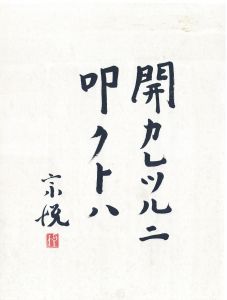 開カレツルニ
叩クトハ
宗悦